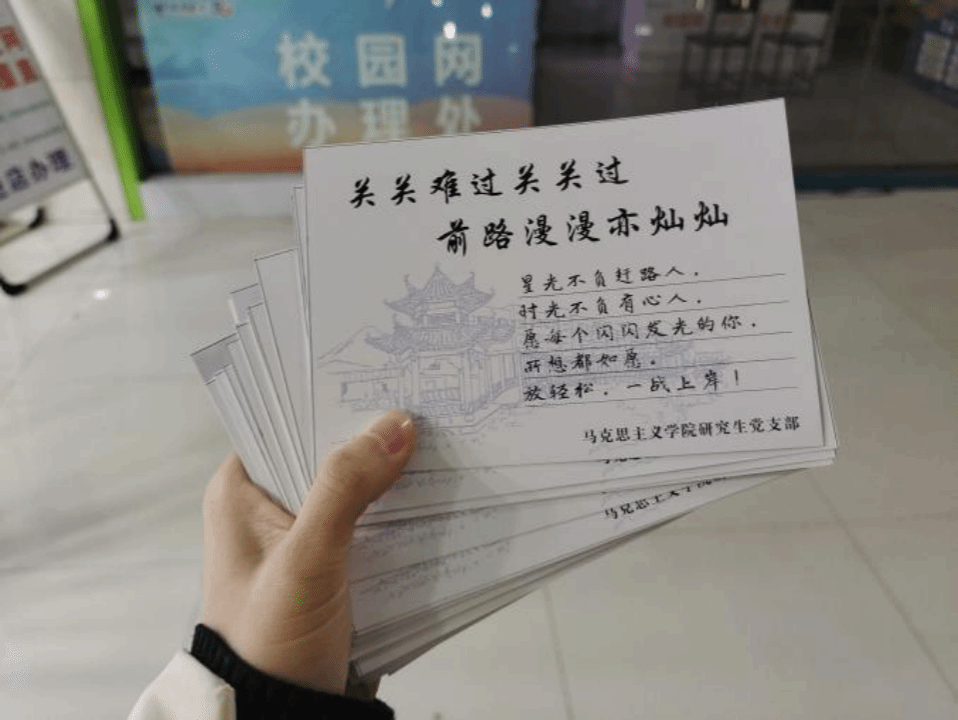 校园网
办理处
店办理
关关难过关关过
前路漫漫亦灿灿
星光不负赶路人,
时光不负有心人,
愿每个闪闪发光的你,
所想都如愿。
放轻松,一战上岸!
马克思主义学院研究生党支部